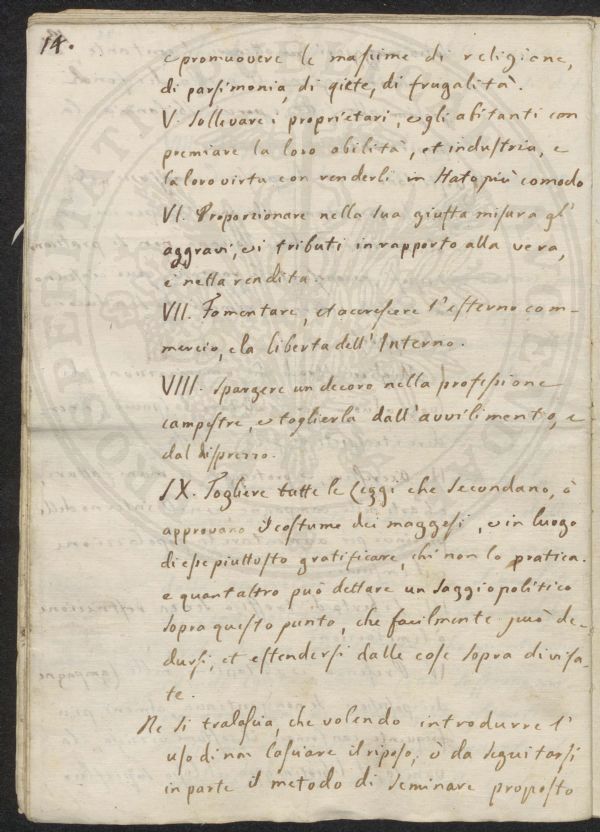 14.
e promuovere le massime di religione,
di parsimonia, di qiete, di frugalità.
V. Sollevare i proprietari, e gli abitanti con
premiare la loro abilità, et industria, e
la loro virtu con renderli in Stato più comodo
VI. Proporzionare nella sua giusta misura gl'
aggravi, e i tributi in rapporto alla vera,
e netta rendita.
VII. Fomentare, et accrescere l'esterno com-
mercio, e la liberta dell'Interno.
VIII. Spargere un decoro nella professione
campestre, e toglierla dall'avvilimento, e
dal disprezzo.
IX. Togliere tutte le Leggi che secondano, ò
approvano il costume dei maggesi, e in luogo
di esse piuttosto gratificare, chi non lo pratica.
e quant altro può dettare un saggio politico
sopra questo punto, che facilmente può de-
dursi, et estendersi dalle cose sopra divisa-
te.
Ne si tralascia, che volendo introdurre l'
uso di non lasciare il riposo, è da seguitarsi
in parte il metodo di seminare proposto